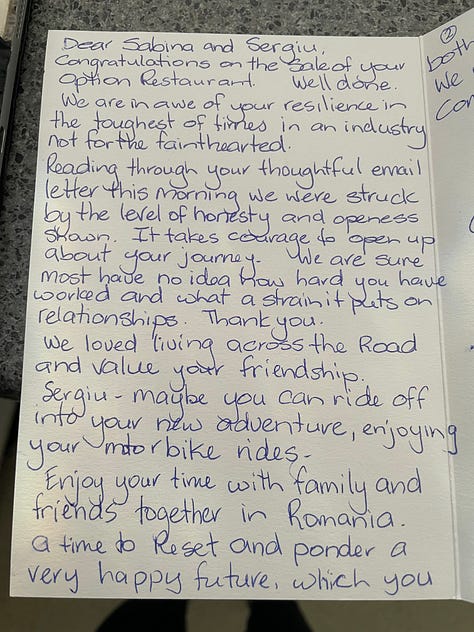 Dear Sabina and Sergiu,
Congratulations on the sale of your
Option Restaurant. Well done.
We are in awe of your resilience in
the toughest of times in an industry
not for the fainthearted.
Reading through your thoughtful email
letter this morning we were struck
by the level of honesty and openess
shown. It takes courage to open up
about your journey. We are sure
most have no idea how hard you have
worked and what a strain it puts on
relationships. Thank you.
We loved living across the Road
and value your friendship.
Sergiu - maybe you can ride off
into your new adventure, enjoying
your motorbike rides -
Enjoy your time with family and
friends together in Romania.
a time to Reset and ponder a
very happy future, which you
②
both
We